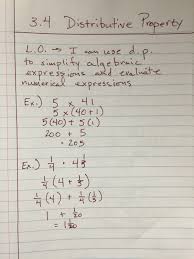 3.4 Distributive Property
L.O. → I can use d.p.
to simplify algebraic
expressions and evaluate
numerical expressions
Ex.) 5 × 41
5 × (40+1)
5(40) + 5(1)
200 + 5
= 205
Ex.) 1/4 · 4 1/5
1/4 (4 + 1/5)
1/4 (4) + 1/4 (1/5)
1 + 1/20
= 1 1/20